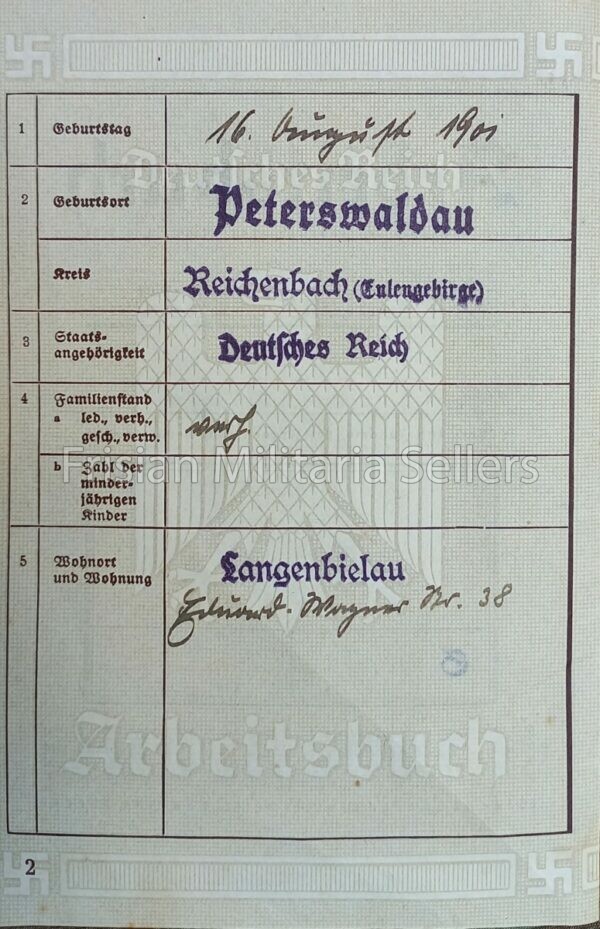 1 Geburtstag 16. August 1901
Deutsches Reich
2 Geburtsort Peterswaldau
Kreis Reichenbach (Eulengebirge)
3 Staats-
angehörigkeit Deutsches Reich
4 Familienstand
a led., verh.,
gesch., verw. verh.
Frisian Militaria Sellers
b Zahl der
minder-
jährigen
Kinder
5 Wohnort
und Wohnung Langenbielau
Eduard-Wagner Str. 38
Arbeitsbuch
2